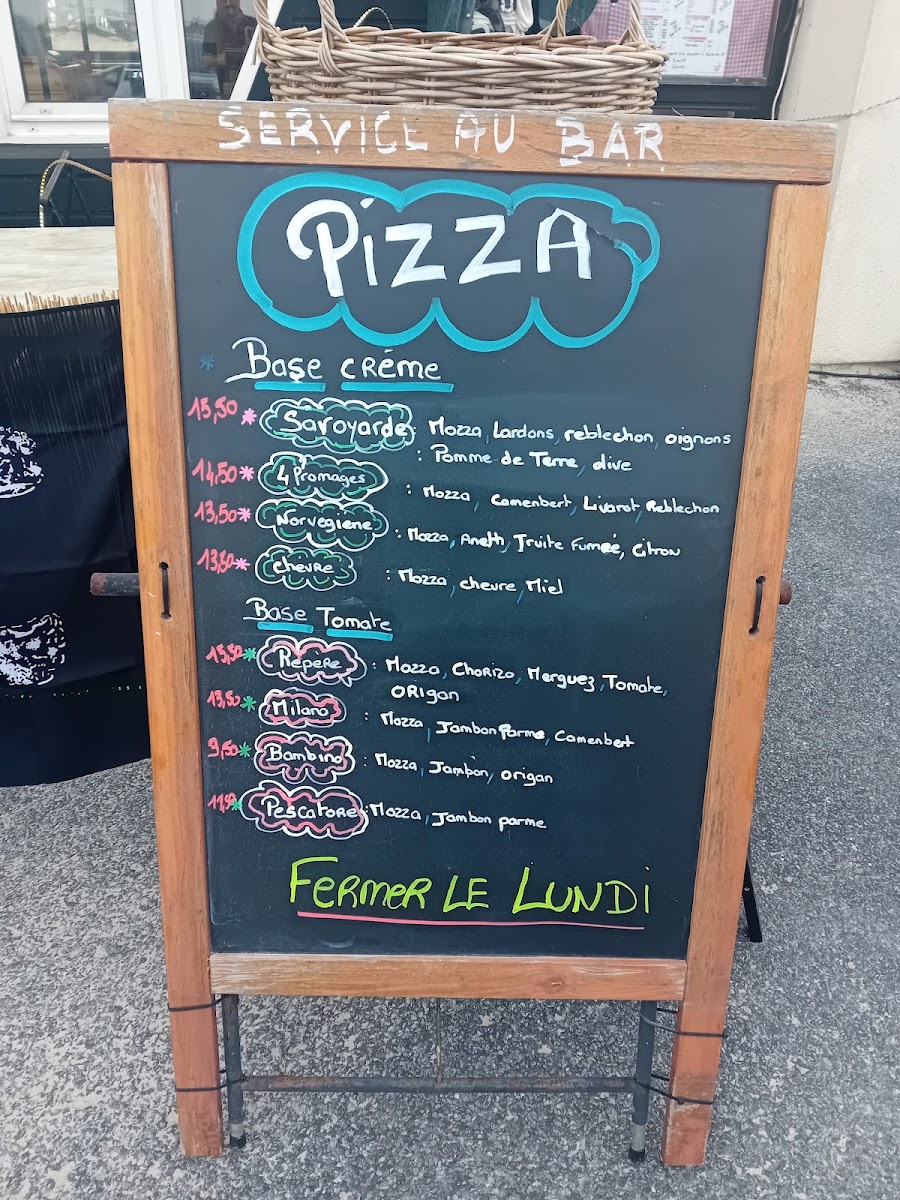 SERVICE AU BAR
PiZZA
* Base crème
15,50 * Savoyarde : Mozza, Lardons, reblechon, oignons
: Pomme de Terre, olive
14,50 * 4 Fromages : Mozza, Camembert, Livarot, Reblechon
13,50 * Norvegiene : Mozza, Aneth, Truite Fumeé, Citron
13,50 * chevre : Mozza, chevre, Miel
Base Tomate
15,50 * Repere : Mozza, Chorizo, Merguez, Tomate,
ORigan
13,50 * Milano : Mozza, Jambon Parme, Camembert
9,50 * Bambino : Mozza, Jambon, origan
* Pescatore : Mozza, Jambon parme
FermeR LE LUNDi